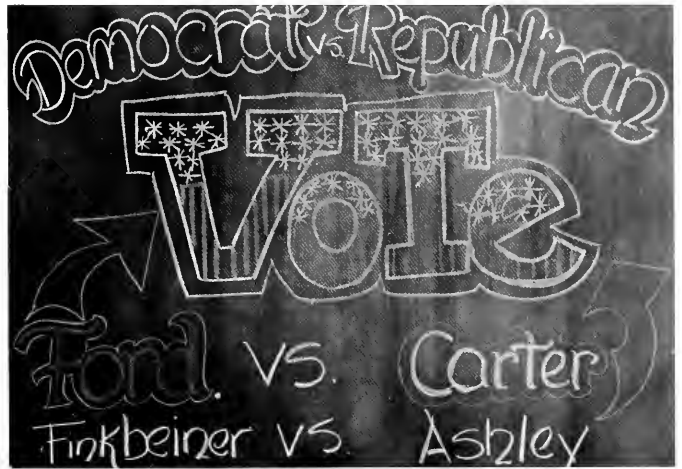 Democrat vs. Republican
Vote
Ford. vs. Carter
Finkbeiner vs. Ashley